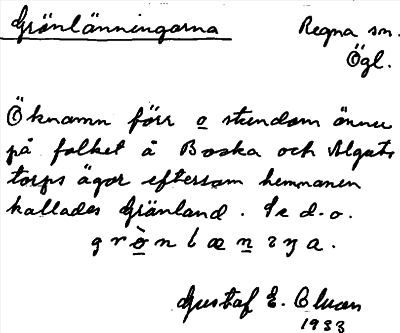 Grönlänningarna
Regna sn.
Ögl.
Öknamn förr o stundom ännu
på folket å Boska och Alguts
torps ägor eftersom hemmanen
kallades Grönland. Se d.o.
Gustaf E.
1933